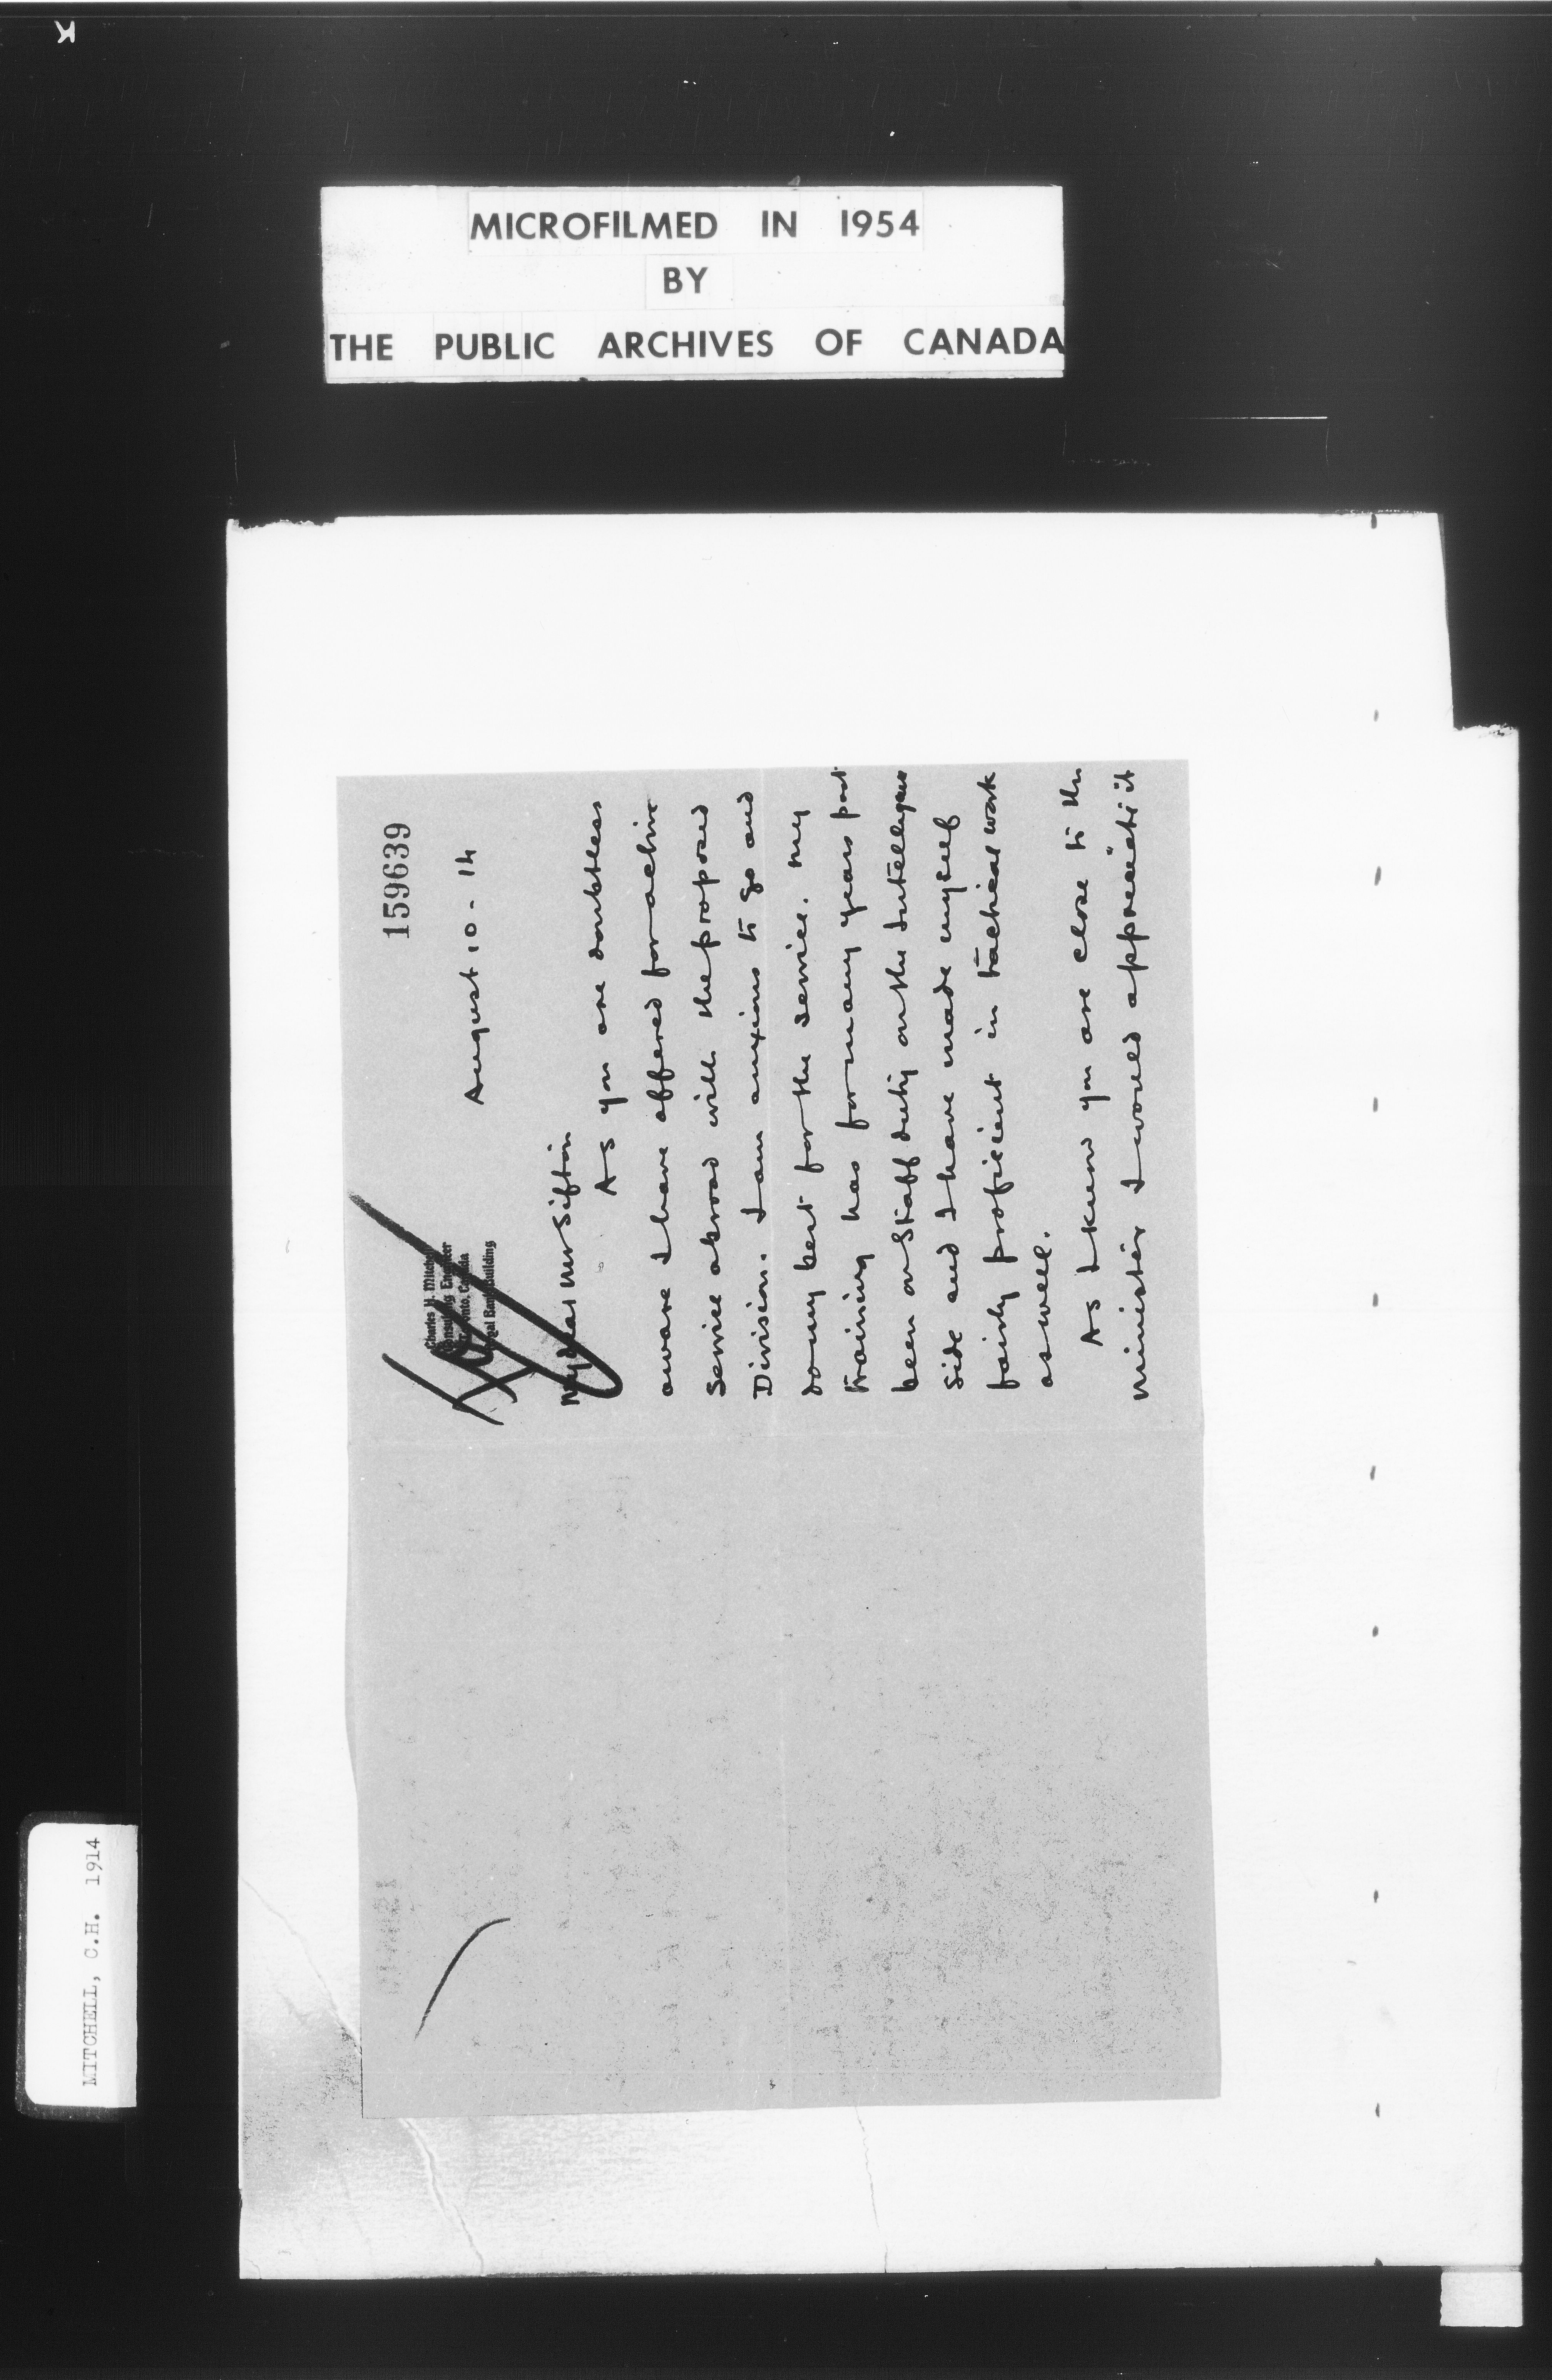 MICROFILMED IN 1954
BY
THE PUBLIC ARCHIVES OF CANADA
MITCHELL, C.H. 1914
159639
Charles H. Mitchell
Consulting Engineer
Toronto, Canada
Royal Bank Building
August 10 - 14
My dear Mr Sifton
As you are doubtless
aware I have offered for active
service abroad with the proposed
Division. I am anxious to go and
do my best for the service. My
training has for many years past
been on Staff duty on the Intelligence
side and I have made myself
fairly proficient in tactical work
as well.
As I know you are close to the
Minister I would appreciate it